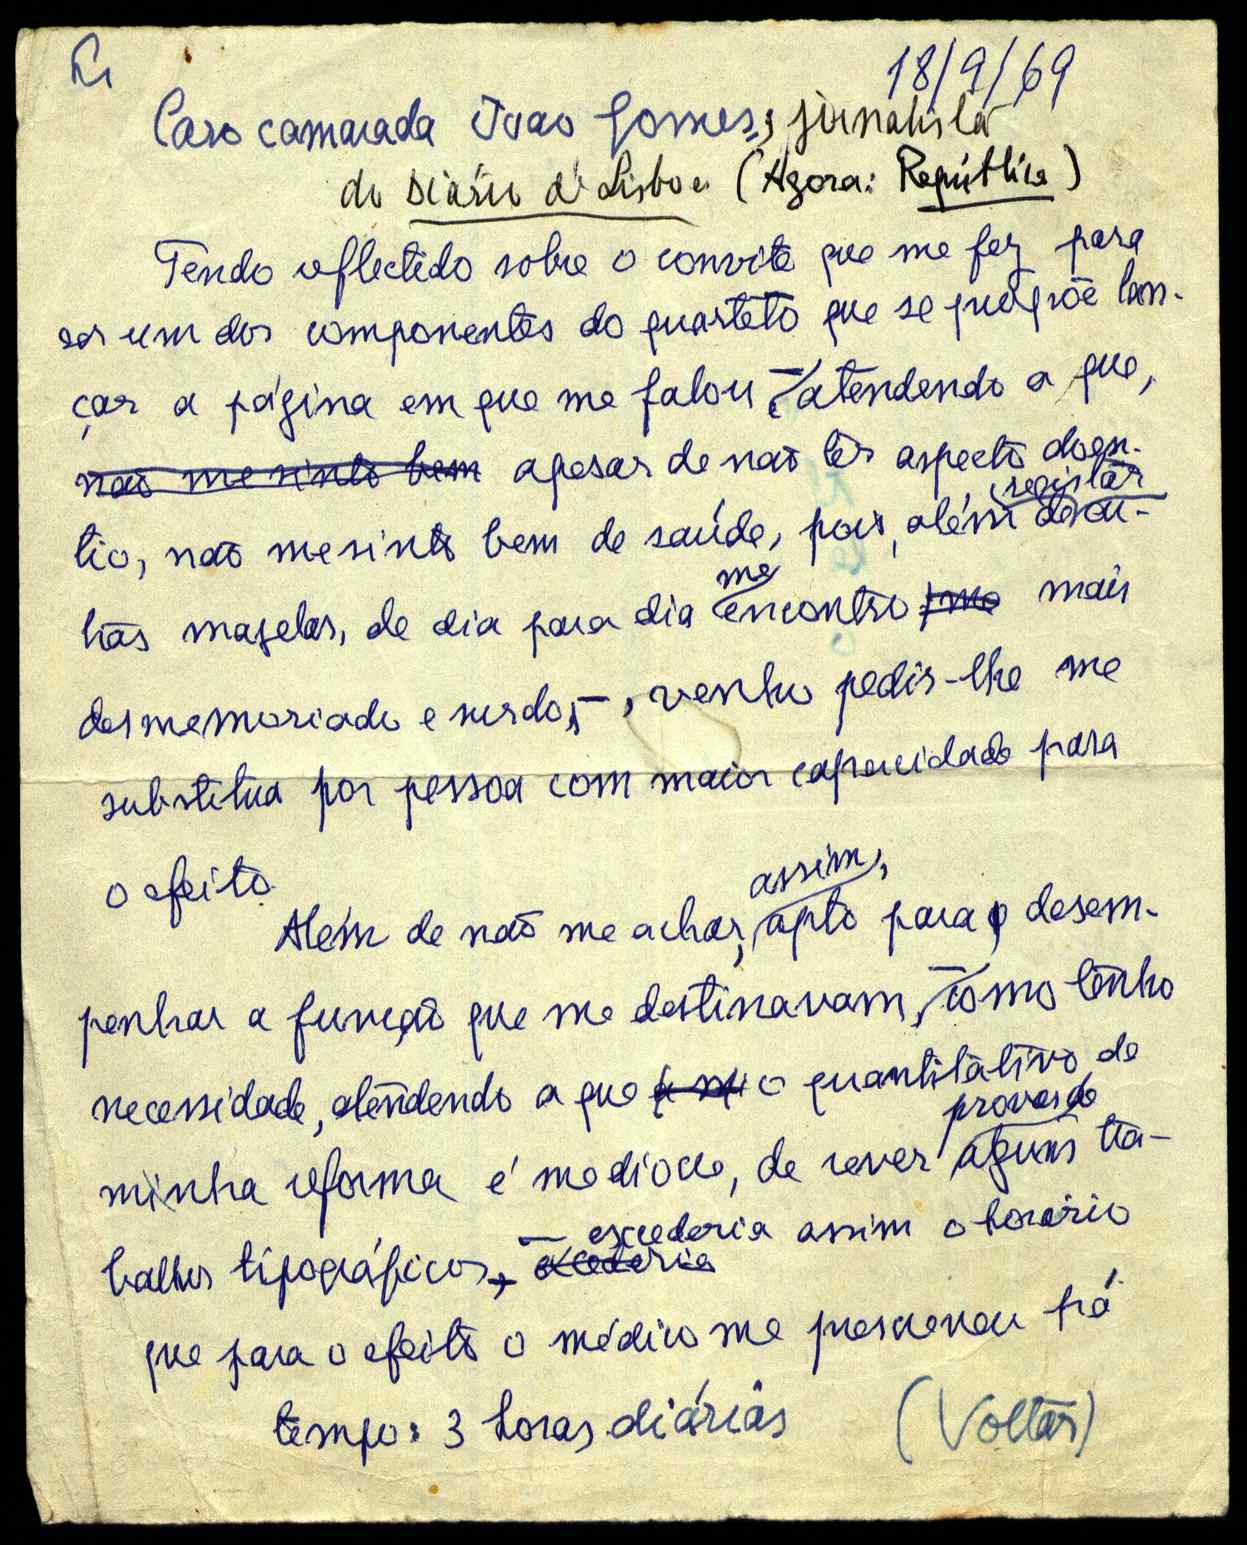 18/9/69
Caro camarada João Gomes, jornalista
do Diário de Lisboa (Agora: República)
Tendo reflectido sobre o convite que me fez para
ser um dos componentes do quarteto que se propõe lan-
çar a página em que me falou, – atendendo a que,
não me sinto bem apesar de não ter aspecto doen-
registar
tio, não me sinto bem de saúde, pois, além de ou-
me
tras mazelas, de dia para dia encontro-me mais
desmemoriado e surdo, –, venho pedir-lhe me
substitua por pessoa com maior capacidade para
o efeito.
assim,
Além de não me achar, apto para desem-
penhar a função que me destinavam, – como tenho
necessidade, atendendo a que o quantitativo de
provas de
minha reforma é mediocre, de rever alguns tra-
excederia assim o horário
balhos tipográficos, – excederia
que para o efeito o médico me prescreveu há
tempo: 3 horas diárias (Voltar)